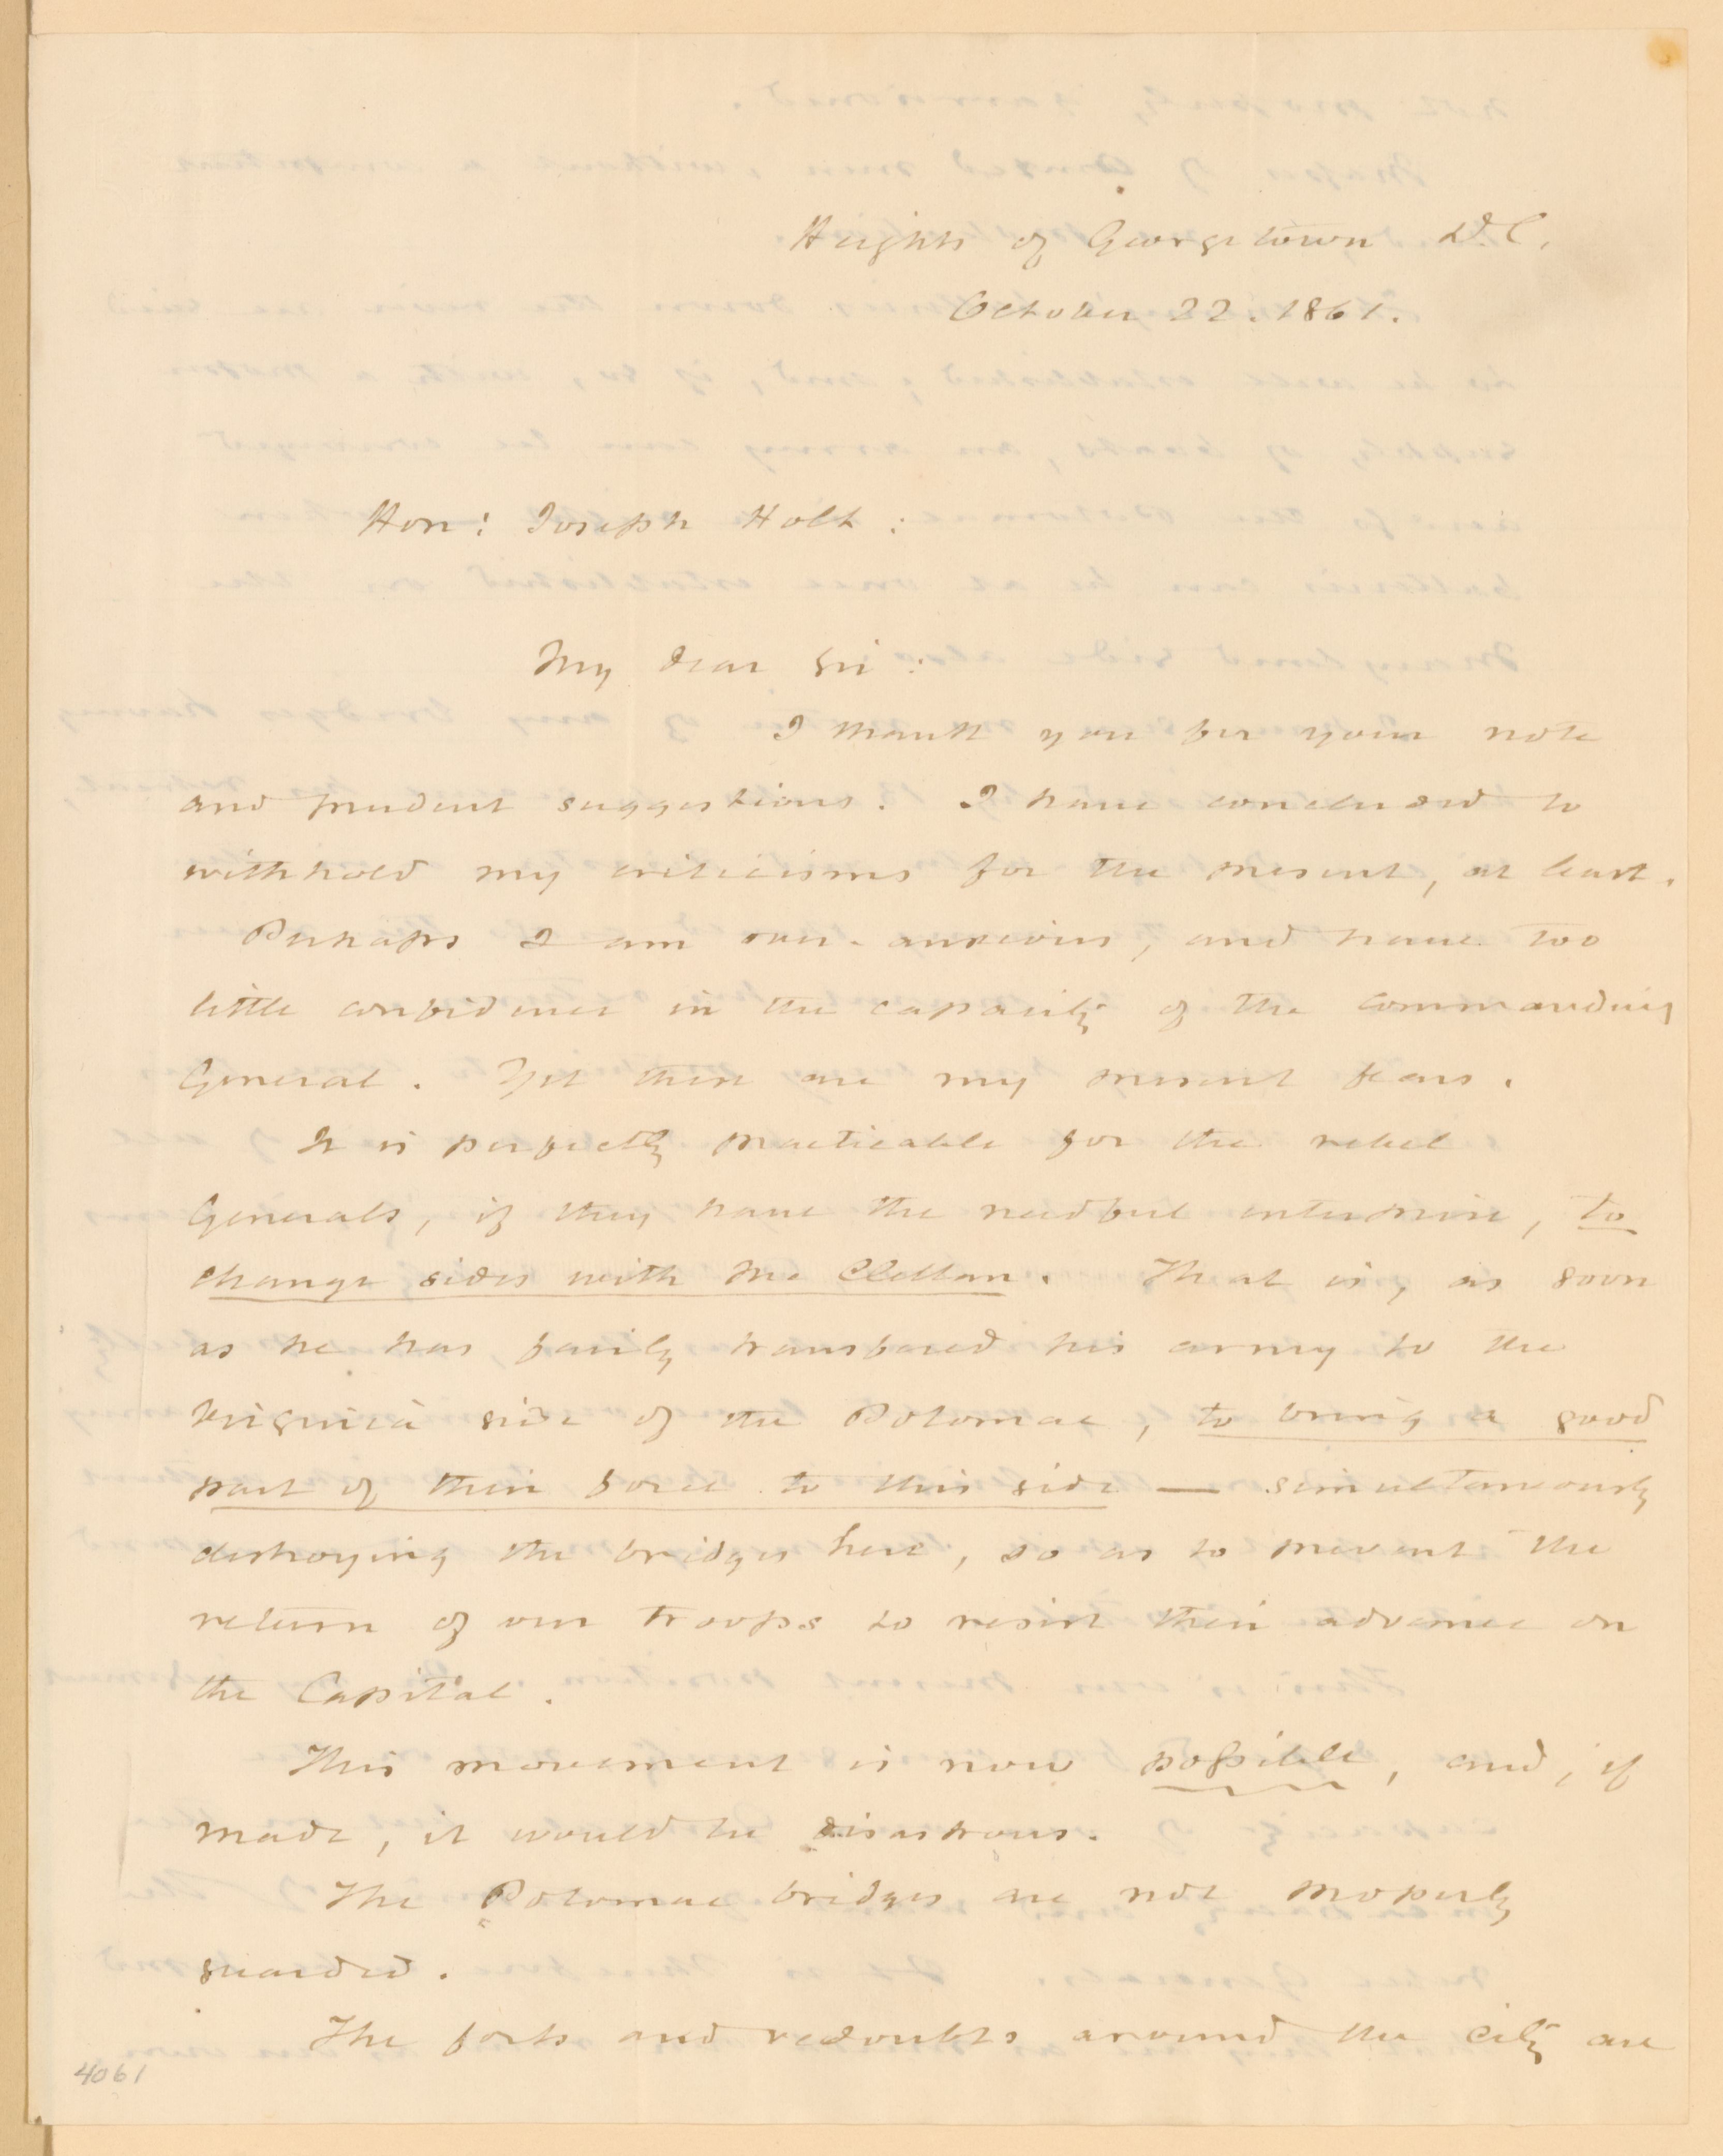 Heights of Georgetown D.C.
October 22. 1861.
Hon: Joseph Holt :
My dear Sir :
I thank you for your note
and prudent suggestions. I have concluded to
withhold my criticisms for the present, at least.
Perhaps I am over-anxious, and have too
little confidence in the capacity of the commanding
General. Yet these are my present fears.
It is perfectly practicable for the rebel
Generals, if they have the needful enterprise, to
change sides with McClellan. That is, as soon
as he has fairly transfered his army to the
Virginia side of the Potomac, to bring a good
part of their force to this side — simultaneously
destroying the bridges here, so as to prevent the
return of our troops to resist their advance on
the Capital.
This movement is now possible, and, if
made, it would be disastrous.
The Potomac bridges are not properly
guarded.
The forts and redoubts around the city are
4061